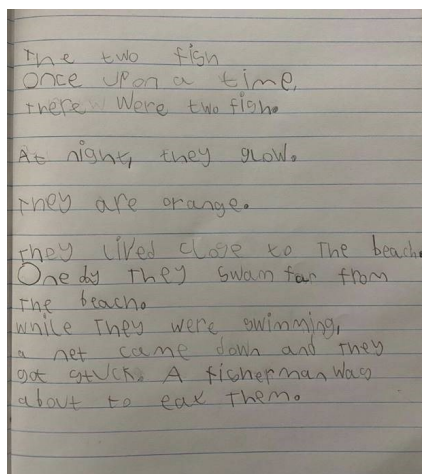 The two fish
Once upon a time,
There were two fish.
At night, they glow.
They are orange.
They lived close to The beach.
One dy They swam far from
The beach.
while They were swimming,
a net came down and They
got stuck. A fisherman was
about to eat Them.